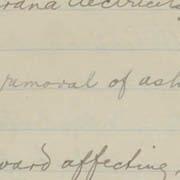 electricity
removal of ash
ward affecting